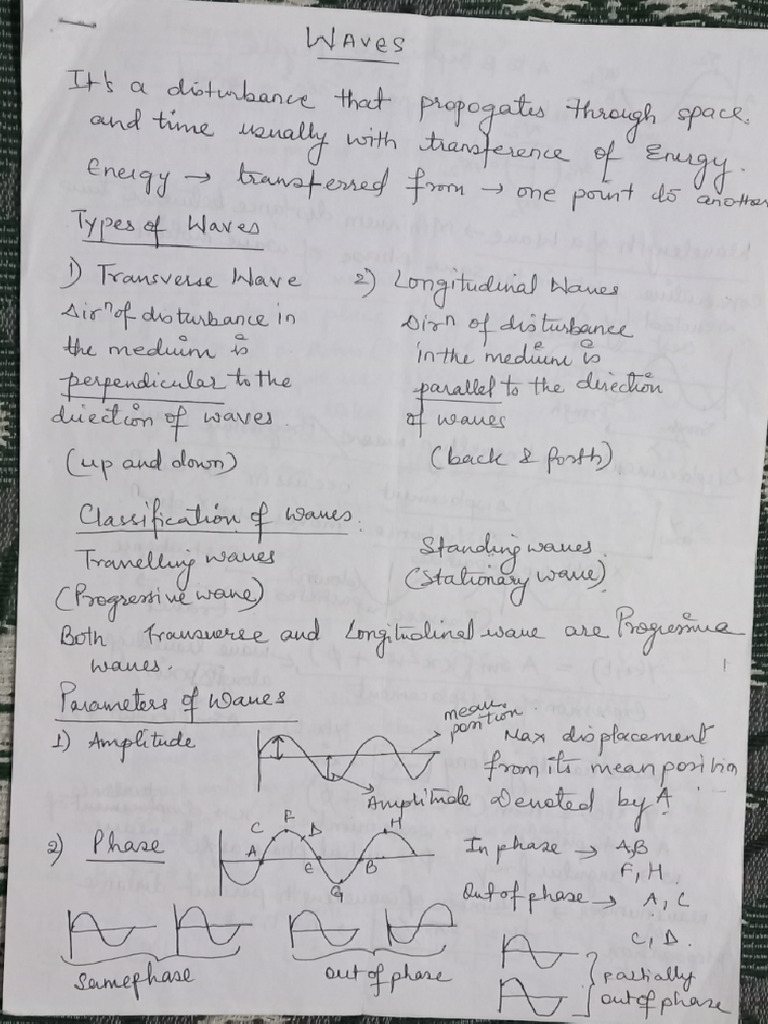 Waves
It's a disturbance that propogates through space.
and time usually with transference of Energy.
Energy → transferred from → one point to another
Types of Waves
1) Transverse Wave
dirⁿ of disturbance in
the medium is
perpendicular to the
direction of waves.
(up and down)
2) Longitudinal Waves
dirⁿ of disturbance
in the medium is
parallel to the direction
of waves
(back & forth)
Classification of waves.
Travelling waves
(Progressive wave)
Standing waves.
(Stationary wave)
Both transverse and Longitudinal wave are Progressive
waves.
Parameters of Waves
1) Amplitude
mean
position
Max displacement
from its mean position
Amplitude Denoted by A
2) Phase
C F D H
A E B
G
In phase → A,B
F, H.
Out of phase → A, C
C, D.
same phase
out of phase
partially
out of phase